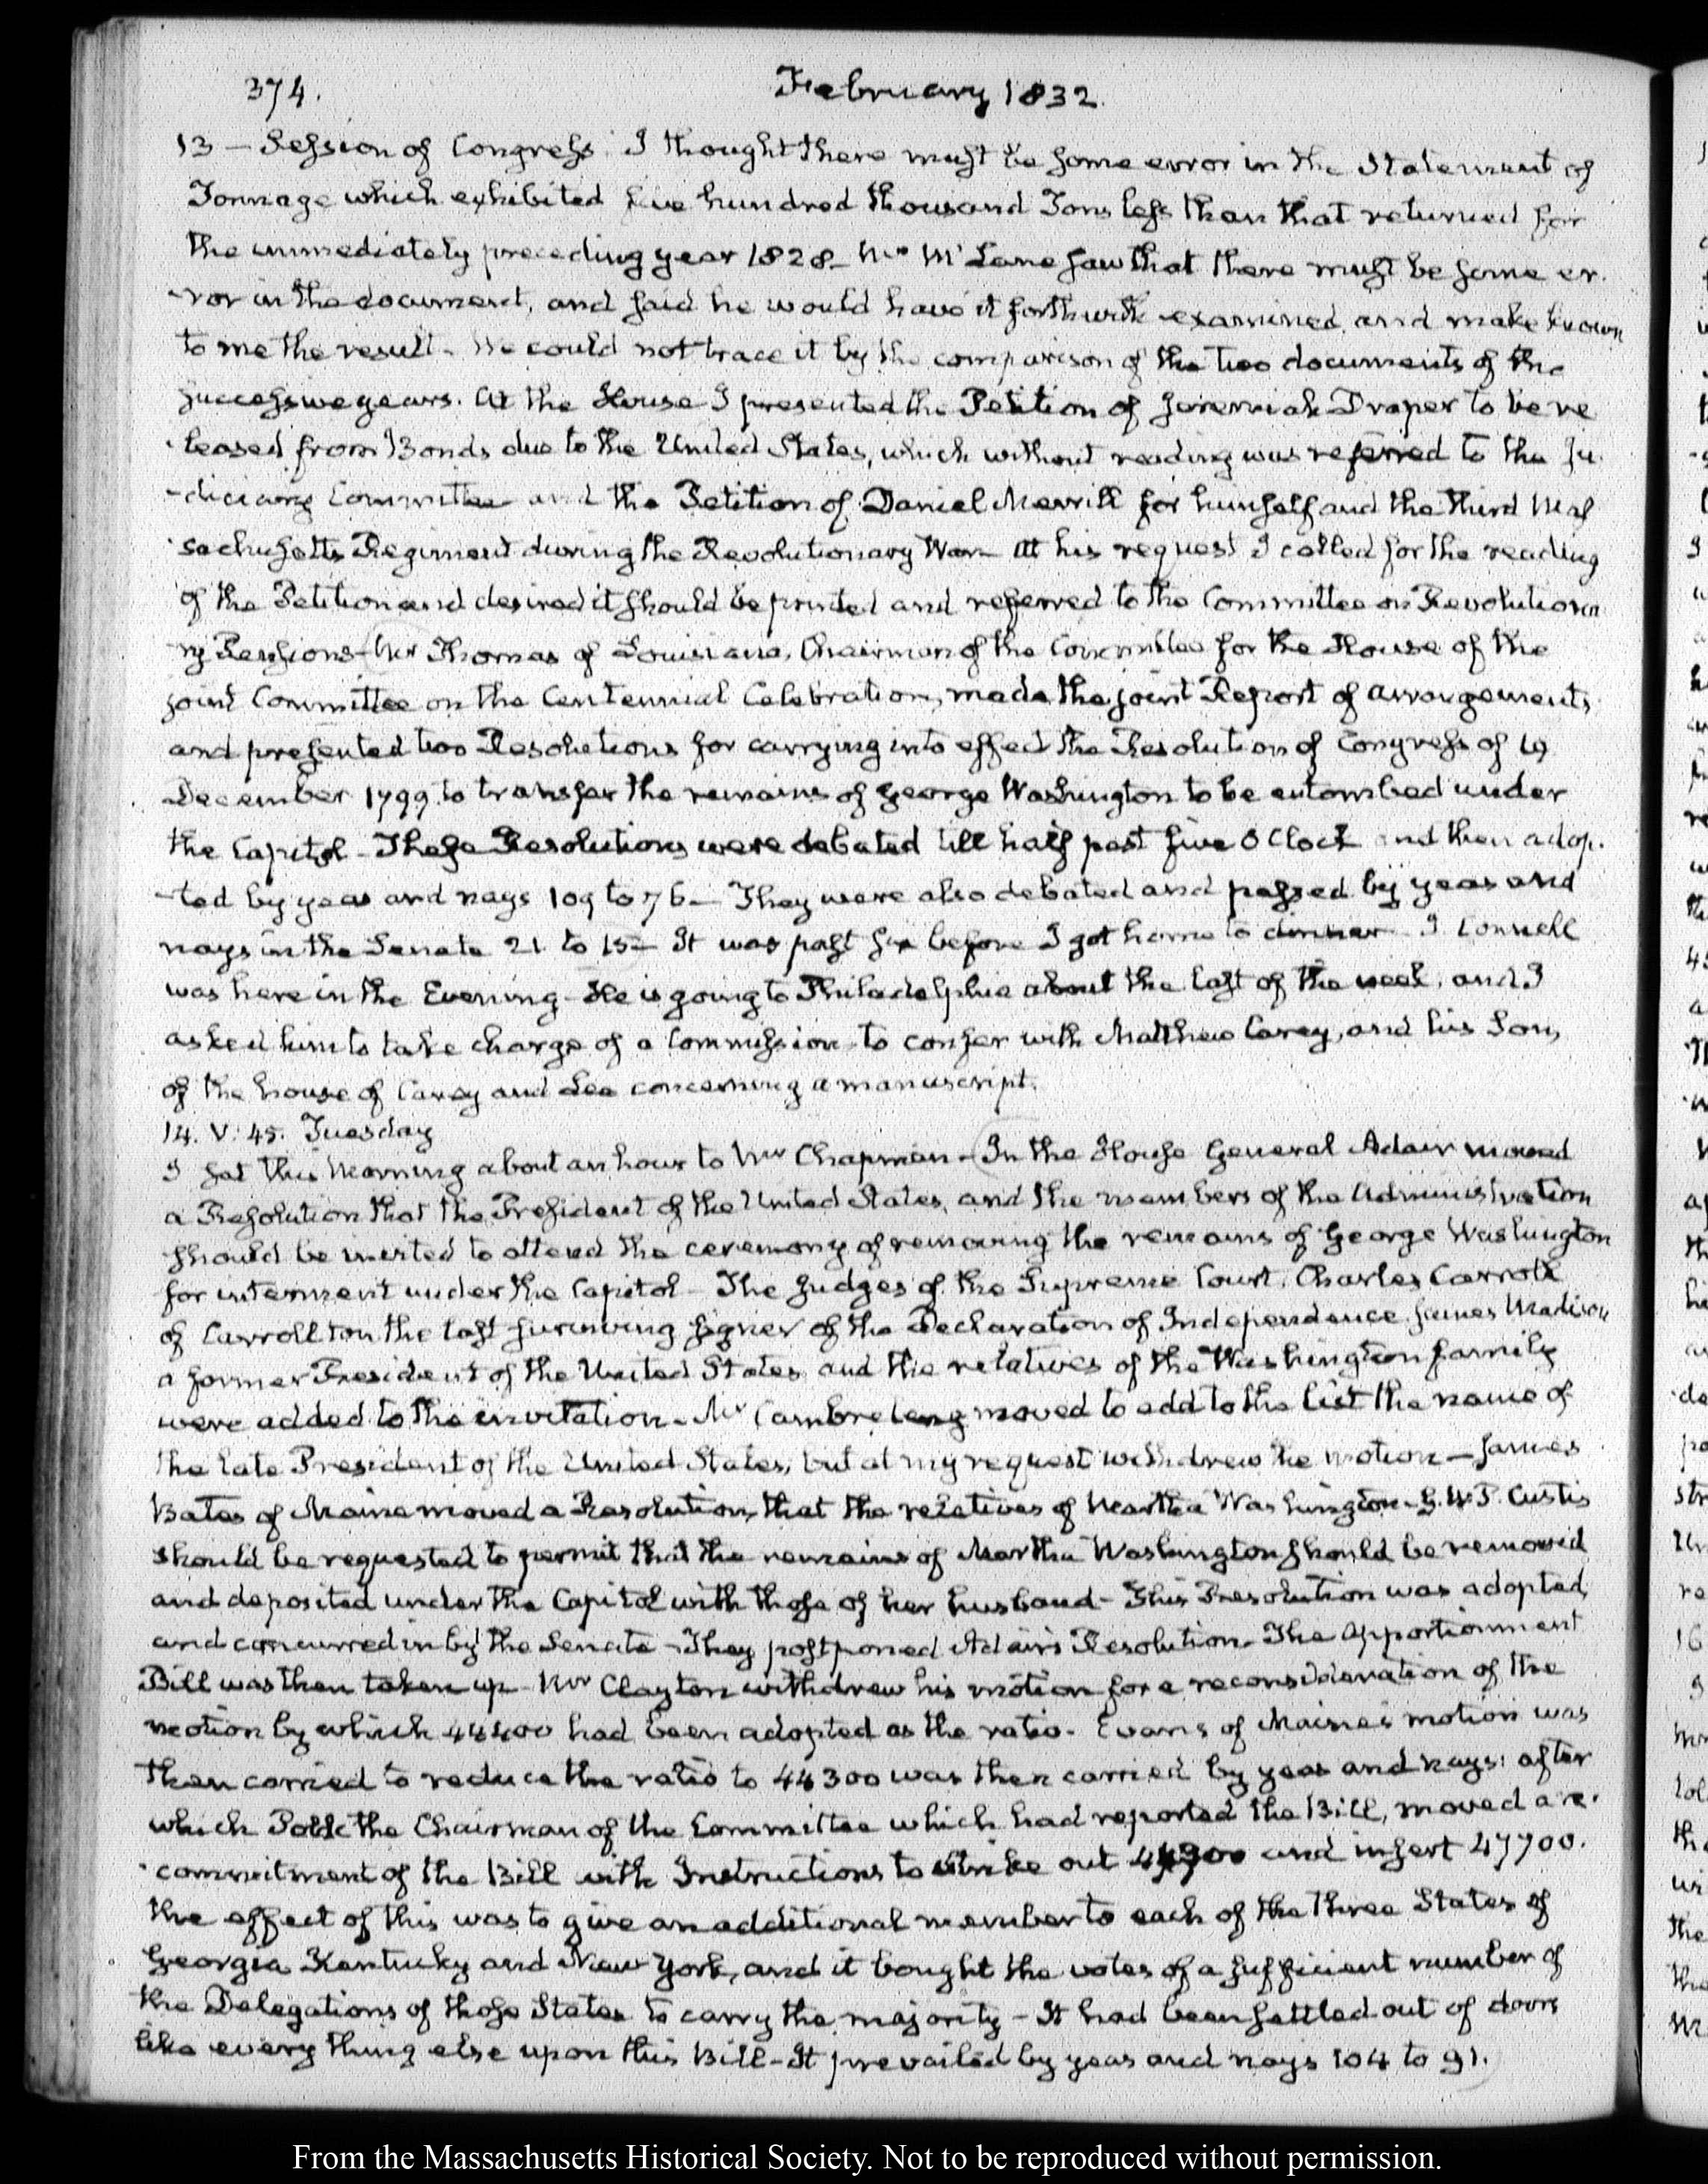 374.
February 1832.
13 — Session of Congress. I thought there must be some error in the Statement of
Tonnage which exhibited five hundred thousand Tons less than that returned for
the immediately preceding year 1828 — Mr McLane saw that there must be some er-
-ror in the document, and said he would have it forthwith examined, and make known
to me the result — We could not trace it by the comparison of the two documents of the
successive years. At the House I presented the Petition of Jeremiah Draper to be re
-leased from Bonds due to the United States, which without reading was referred to the Ju-
-diciary Committee and the Petition of Daniel Merrill for himself and the third Mas
-sachusetts Regiment during the Revolutionary War — At his request I called for the reading
of the Petition and desired it should be printed and referred to the Committee on Revolutiona
ry Pensions — Mr Thomas of Louisiana, Chairman of the Committee for the House of the
joint Committee on the Centennial Celebration, made the joint Report of arrangements,
and presented two Resolutions for carrying into effect the Resolution of Congress of 19
December 1799. to transfer the remains of George Washington to be entombed under
the Capitol — These Resolutions were debated till half past five O Clock and then adop-
-ted by yeas and nays 109 to 76 — They were also debated and passed by yeas and
nays in the Senate 21 to 15 — It was past six before I got home to dinner — J. Connell
was here in the Evening — He is going to Philadelphia about the last of the week, and I
asked him to take charge of a Commission to confer with Matthew Carey, and his Son,
of the house of Carey and Lea concerning a manuscript.
14. V: 45. Tuesday
I sat this Morning about an hour to Mr Chapman — In the House General Adair moved
a Resolution that the President of the United States, and the members of the Administration
should be invited to attend the ceremony of removing the remains of George Washington
for interment under the Capitol — The Judges of the Supreme Court, Charles Carroll
of Carrollton the last surviving signer of the Declaration of Independence James Madison
a former President of the United States and the relatives of the Washington family
were added to the invitation — Mr Cambreleng moved to add to the list the name of
the late President of the United States, but at my request withdrew the motion — James
Bates of Maine moved a Resolution, that the relatives of Martha Washington — G. W. P. Custis
should be requested to permit that the remains of Martha Washington should be removed
and deposited under the Capitol with those of her husband — This Resolution was adopted,
and concurred in by the Senate — They postponed Adair's Resolution — The Apportionment
Bill was then taken up — Mr Clayton withdrew his motion for a reconsideration of the
motion by which 44400 had been adopted as the ratio — Evans of Maine's motion was
then carried to reduce the ratio to 44300 was then carried by yeas and nays: after
which Polk the Chairman of the Committee which had reported the Bill, moved a re-
-commitment of the Bill with Instructions to strike out 44300 and insert 47700.
the effect of this was to give an additional member to each of the three States of
Georgia Kentucky and New York, and it bought the votes of a sufficient number of
the Delegations of those States to carry the majority — It had been settled out of doors
like every thing else upon this Bill — It prevailed by yeas and nays 104 to 91.
From the Massachusetts Historical Society. Not to be reproduced without permission.